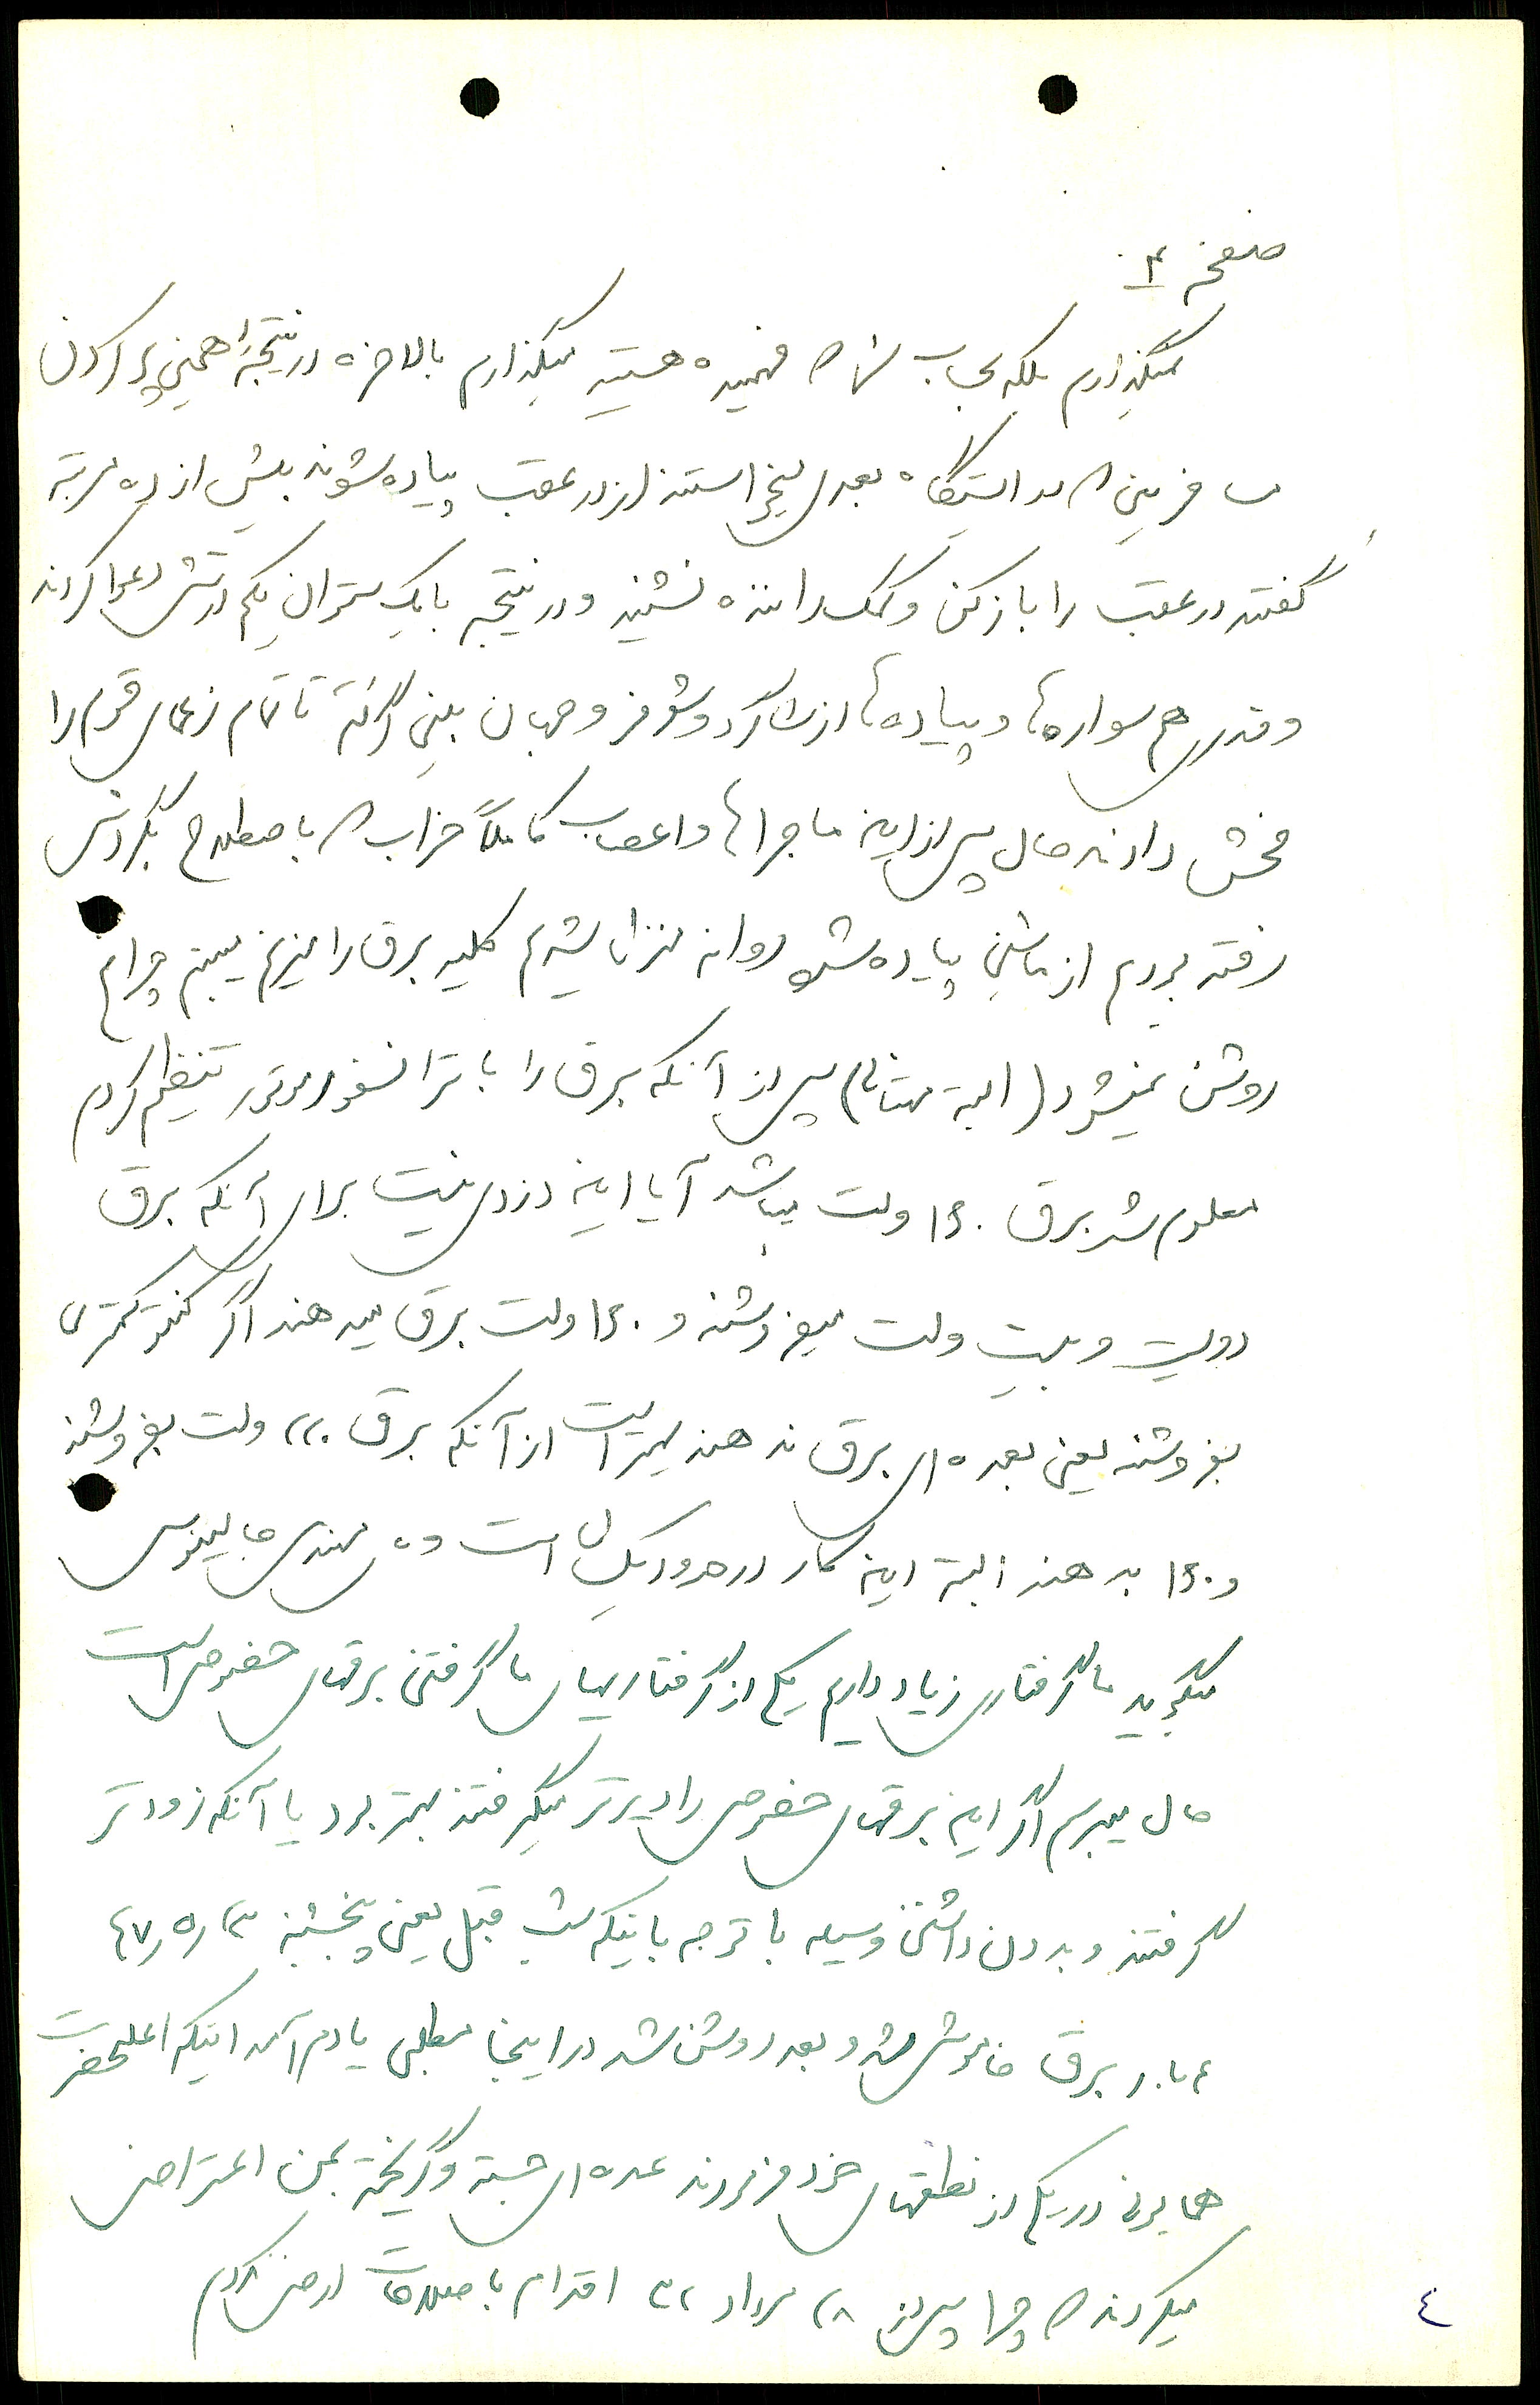 صفحه ۴
نمیگذارم بلکه بحساب شما که فهمیده هستید میگذارم بالاخره در نتیجه همین
مسافرینی که در ایستگاه بعدی میخواستند از در عقب پیاده شوند بیش از ده مرتبه
گفتند در عقب را باز کن و کمک راننده نشنید و در نتیجه با یک ستوان یکم ارتش دعوا کردند
و قدری هم سواره‌ها و پیاده‌ها از شاگرد و شوفر و مهمان بلیی گرفته تا تمام زعمای قوم را
فحش دادند حال پس از این ماجراها و اعصاب کاملاً خراب که باصطلاح بگردش
رفته بودم از ماشین پیاده شده روانه منزل میشوم کلید برق را میزنم میبینم چراغ
روشن نمیشود (البته مهتابی) پس از آنکه برق را با ترانسفورموتور تنظیم کردم
معلوم شد برق ۱۶۰ ولت میباشد آیا این دزدی نیست برای آنکه برق
دویست و بیست ولت میفروشند و ۱۶۰ ولت برق میدهند اگر کنتور کمتری
بفروشند یعنی بعده‌ای برق ندهند بهتر است از آنکه برق ۲۲۰ ولت بفروشند
و ۱۶۰ بدهند البته این کار در حدود یکسال است و ه مهندس جالینوس
میگوید ما گرفتاری زیاد داریم یکی از گرفتاریهای ما گرفتن برقهای خصوصی است
حال میپرسم اگر این برقهای خصوصی را دیرتر میگرفتند بهتر بود یا آنکه زودتر
گرفتند و بدون داشتن وسیله با توجه باینکه شب قبل یعنی پنجشنبه ۳ر۵ر۴۷
۴ بار برق خاموش شد و بعد روشن شد در اینجا مطلبی یادم آمد اینکه اعلیحضرت
همایونی در یکی از نطقهای خود فرمودند عده‌ای جسته و گریخته بمن اعتراض
میکردند که چرا پس از ۲۸ مرداد ۳۲ اقدام باصلاحات ارضی نکردم
٤